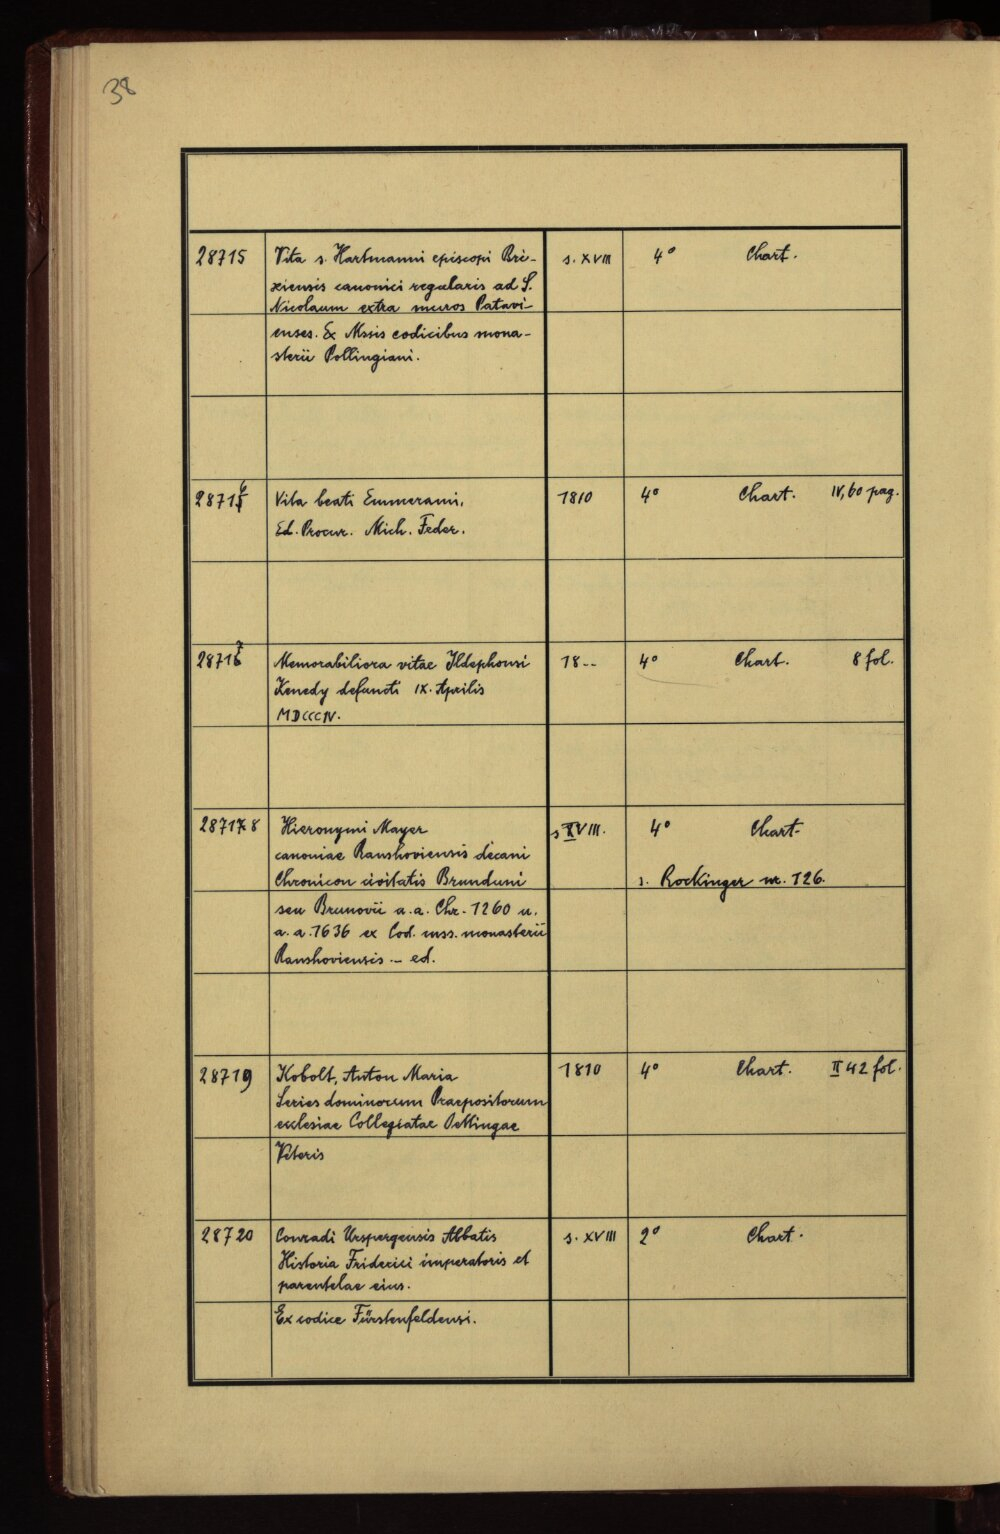 38
28715 Vita s. Hartmanni episcopi Bri- s. XVIII 4° Chart.
xiensis canonici regularis ad S.
Nicolaum extra muros Patavi-
enses. Ex Mssis codicibus mona-
sterii Pollingiani.
28716 Vita beati Emmerami, 1810 4° Chart. IV, 60 pag.
Ed. Procur. Mich. Feder.
28717 Memorabiliora vitae Ildephonsi 18-- 4° Chart. 8 fol.
Kenedy defuncti IX. Aprilis
MDCCCIV.
28718 Hieronymi Mayer s XVIII. 4° Chart.
canoniae Ranshoviensis decani
Chronicon civitatis Brunduni s. Rockinger nr. 126.
seu Brunovii a. a. Chr. 1260 u.
a. a. 1636 ex Cod. mss. monasterii
Ranshoviensis - ed.
28719 Kobolt, Anton Maria 1810 4° Chart. II 42 fol.
Series dominorum Praepositorum
ecclesiae Collegiatae Oettingae
Veteris
28720 Conradi Urspergensis Abbatis s. XVIII 2° Chart.
Historia Friderici imperatoris et
parentelae eius.
Ex codice Fürstenfeldensi.